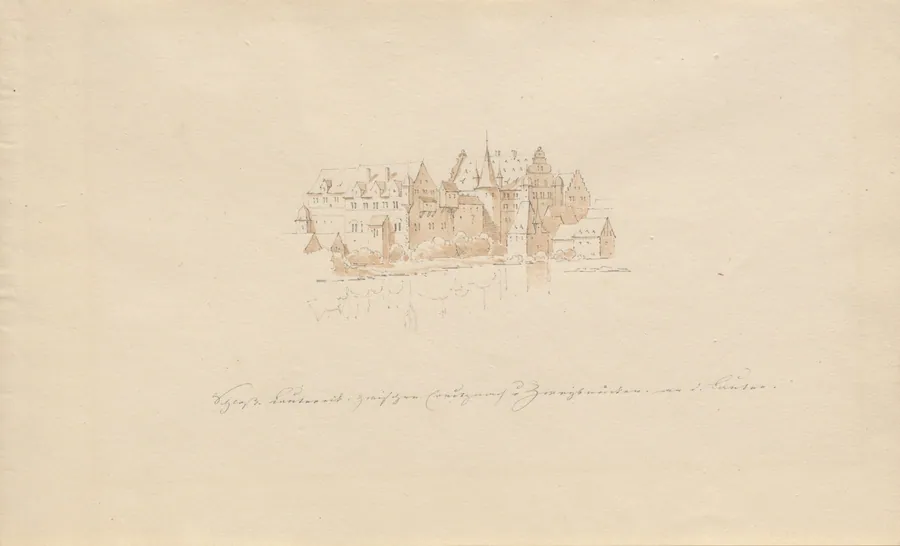 Schloß Lautereck. zwischen Creutznach u Zweybrücken. an d. Lauter.